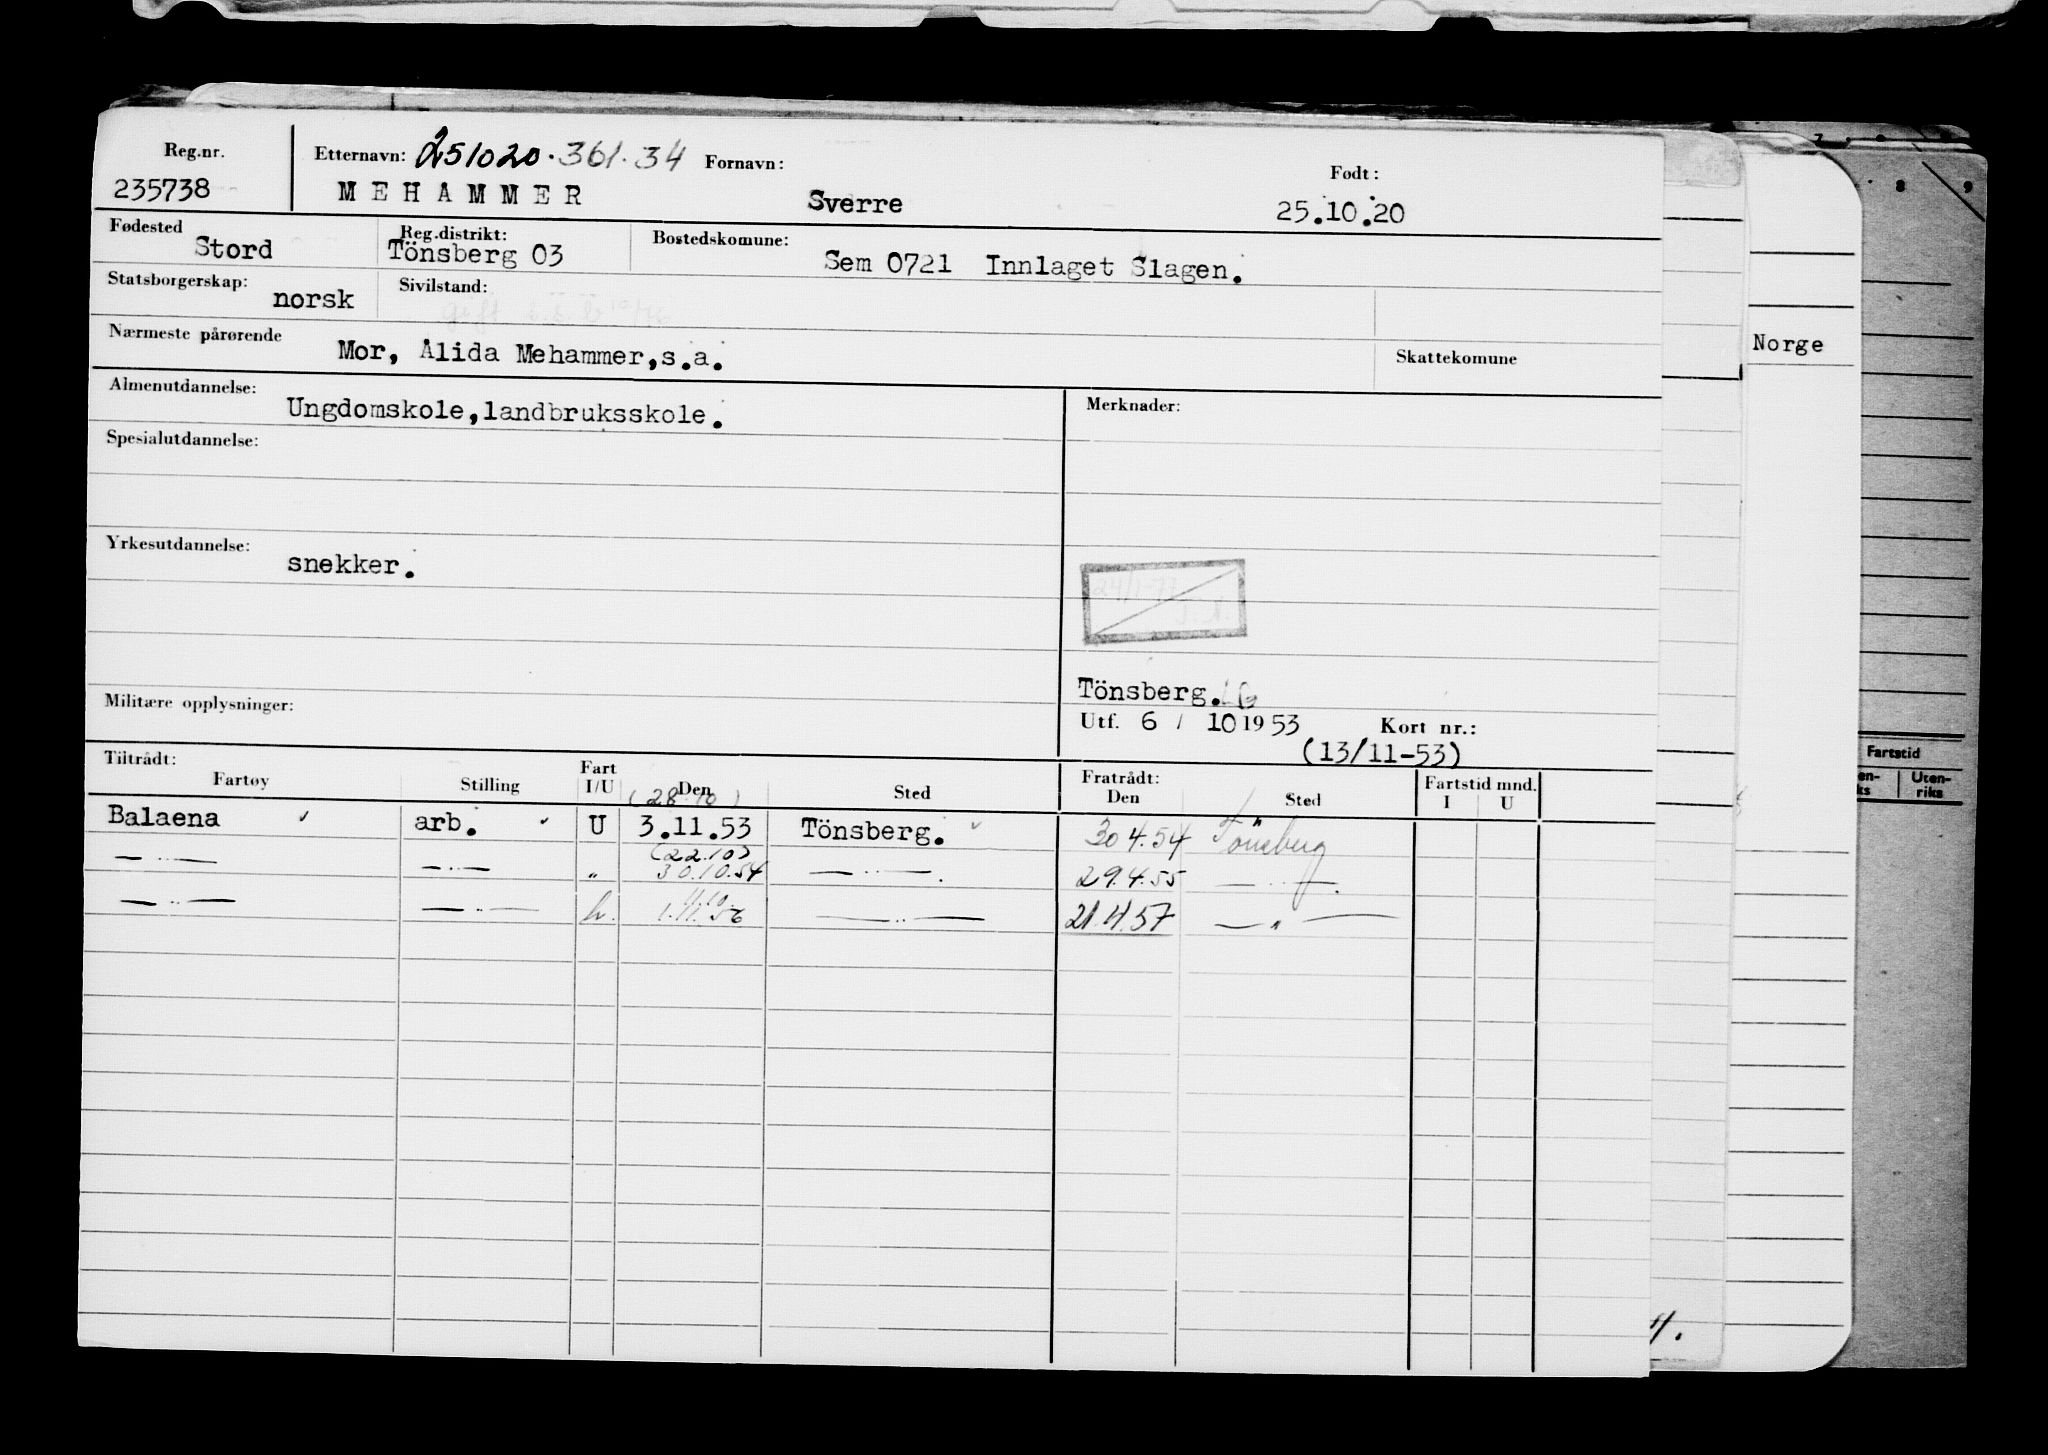 Reg.nr. Etternavn: 251020.361.34 Fornavn: Født:
235738 MEHAMMER Sverre 25.10.20
Fødested Reg.distrikt: Bostedskomune:
Stord Tönsberg 03 Sem 0721 Innlaget Slagen.
Statsborgerskap: Sivilstand:
norsk gift
Nærmeste pårørende Skattekomune
Mor, Alida Mehammer,s.a.
Norge
Almenutdannelse: Merknader:
Ungdomskole,landbruksskole.
Spesialutdannelse:
Yrkesutdannelse:
snekker.
Tönsberg.
Militære opplysninger: Utf. 6 / 10 1953 Kort nr.:
(13/11-53)
Tiltrådt: Fratrådt: Fartstid mnd.
Fartøy Stilling Fart I/U Den Sted Den Sted I U
(28.10)
Balaena arb. U 3.11.53 Tönsberg. 30 4.54 Tönsberg
(22.10)
— " — — " — " 30.10.54 — " —. 29.4.55 — " —.
— " — — " — 1.11.56 — " — 21.4.57 — " —
7 8 9
8 9
Fartstid
en-
ks
Uten-
riks